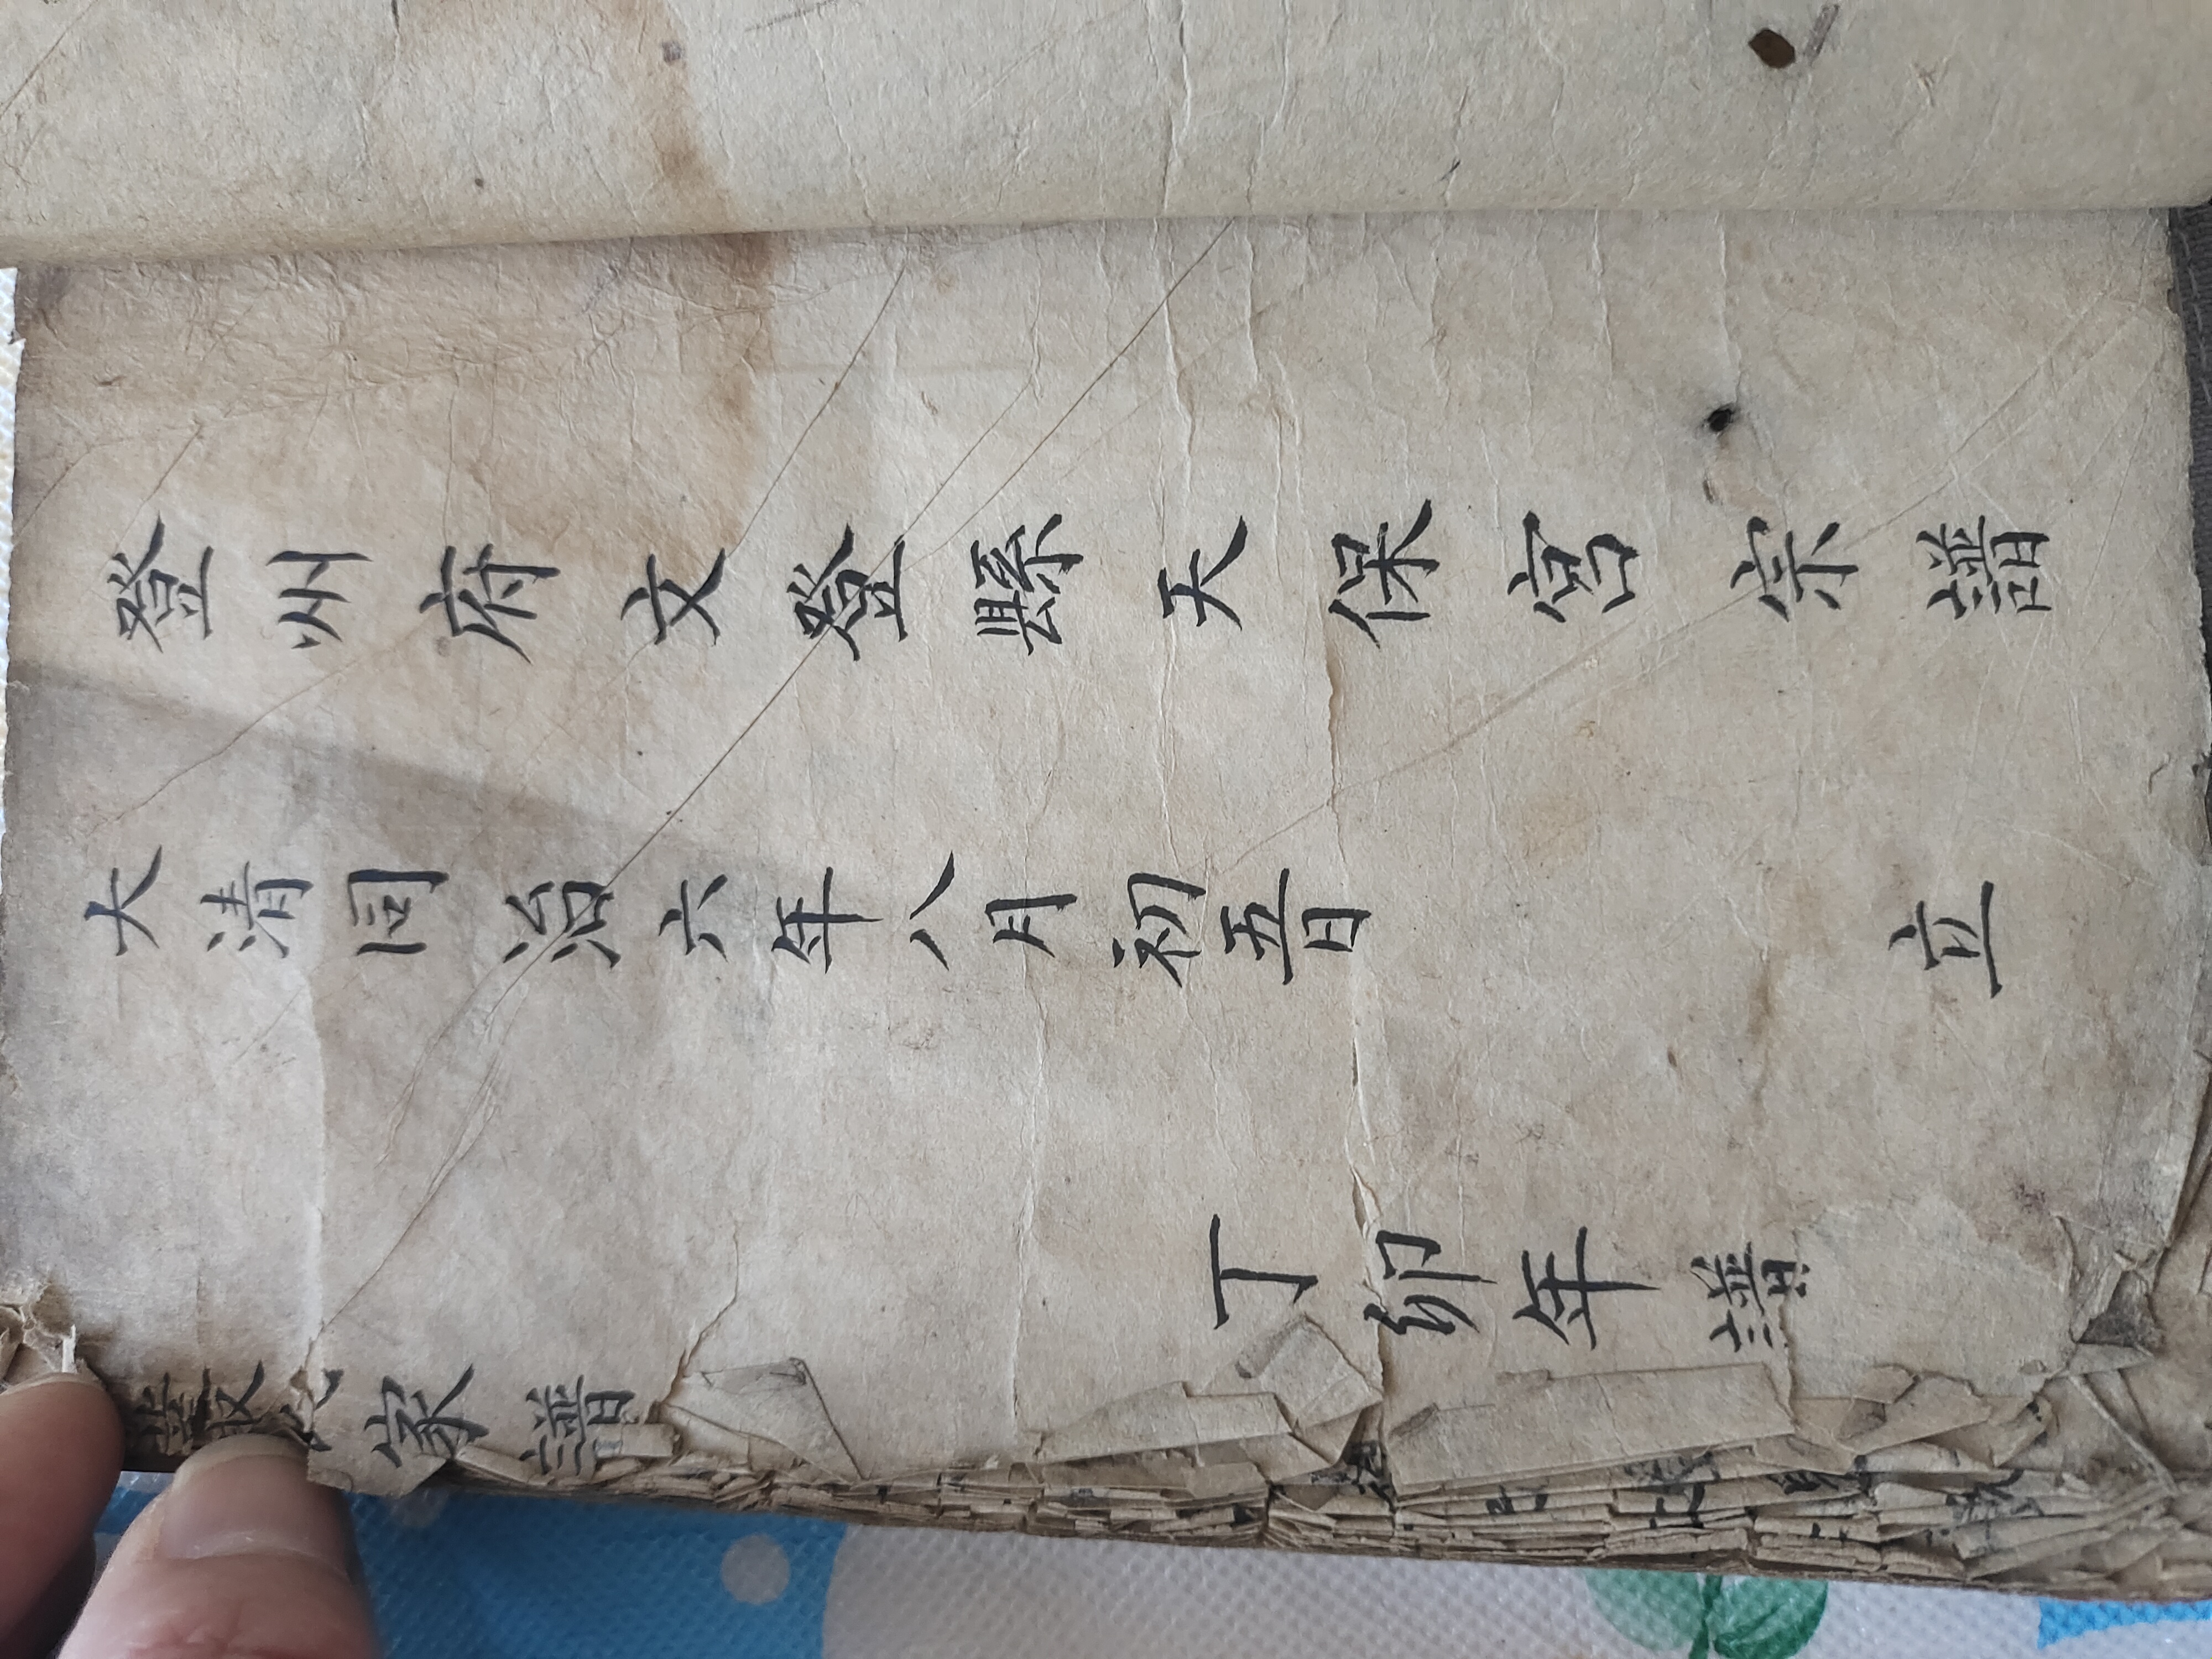 登州府文登縣天保宮宗譜
大清同治六年八月初五日 立
丁卯年譜
叢 家譜